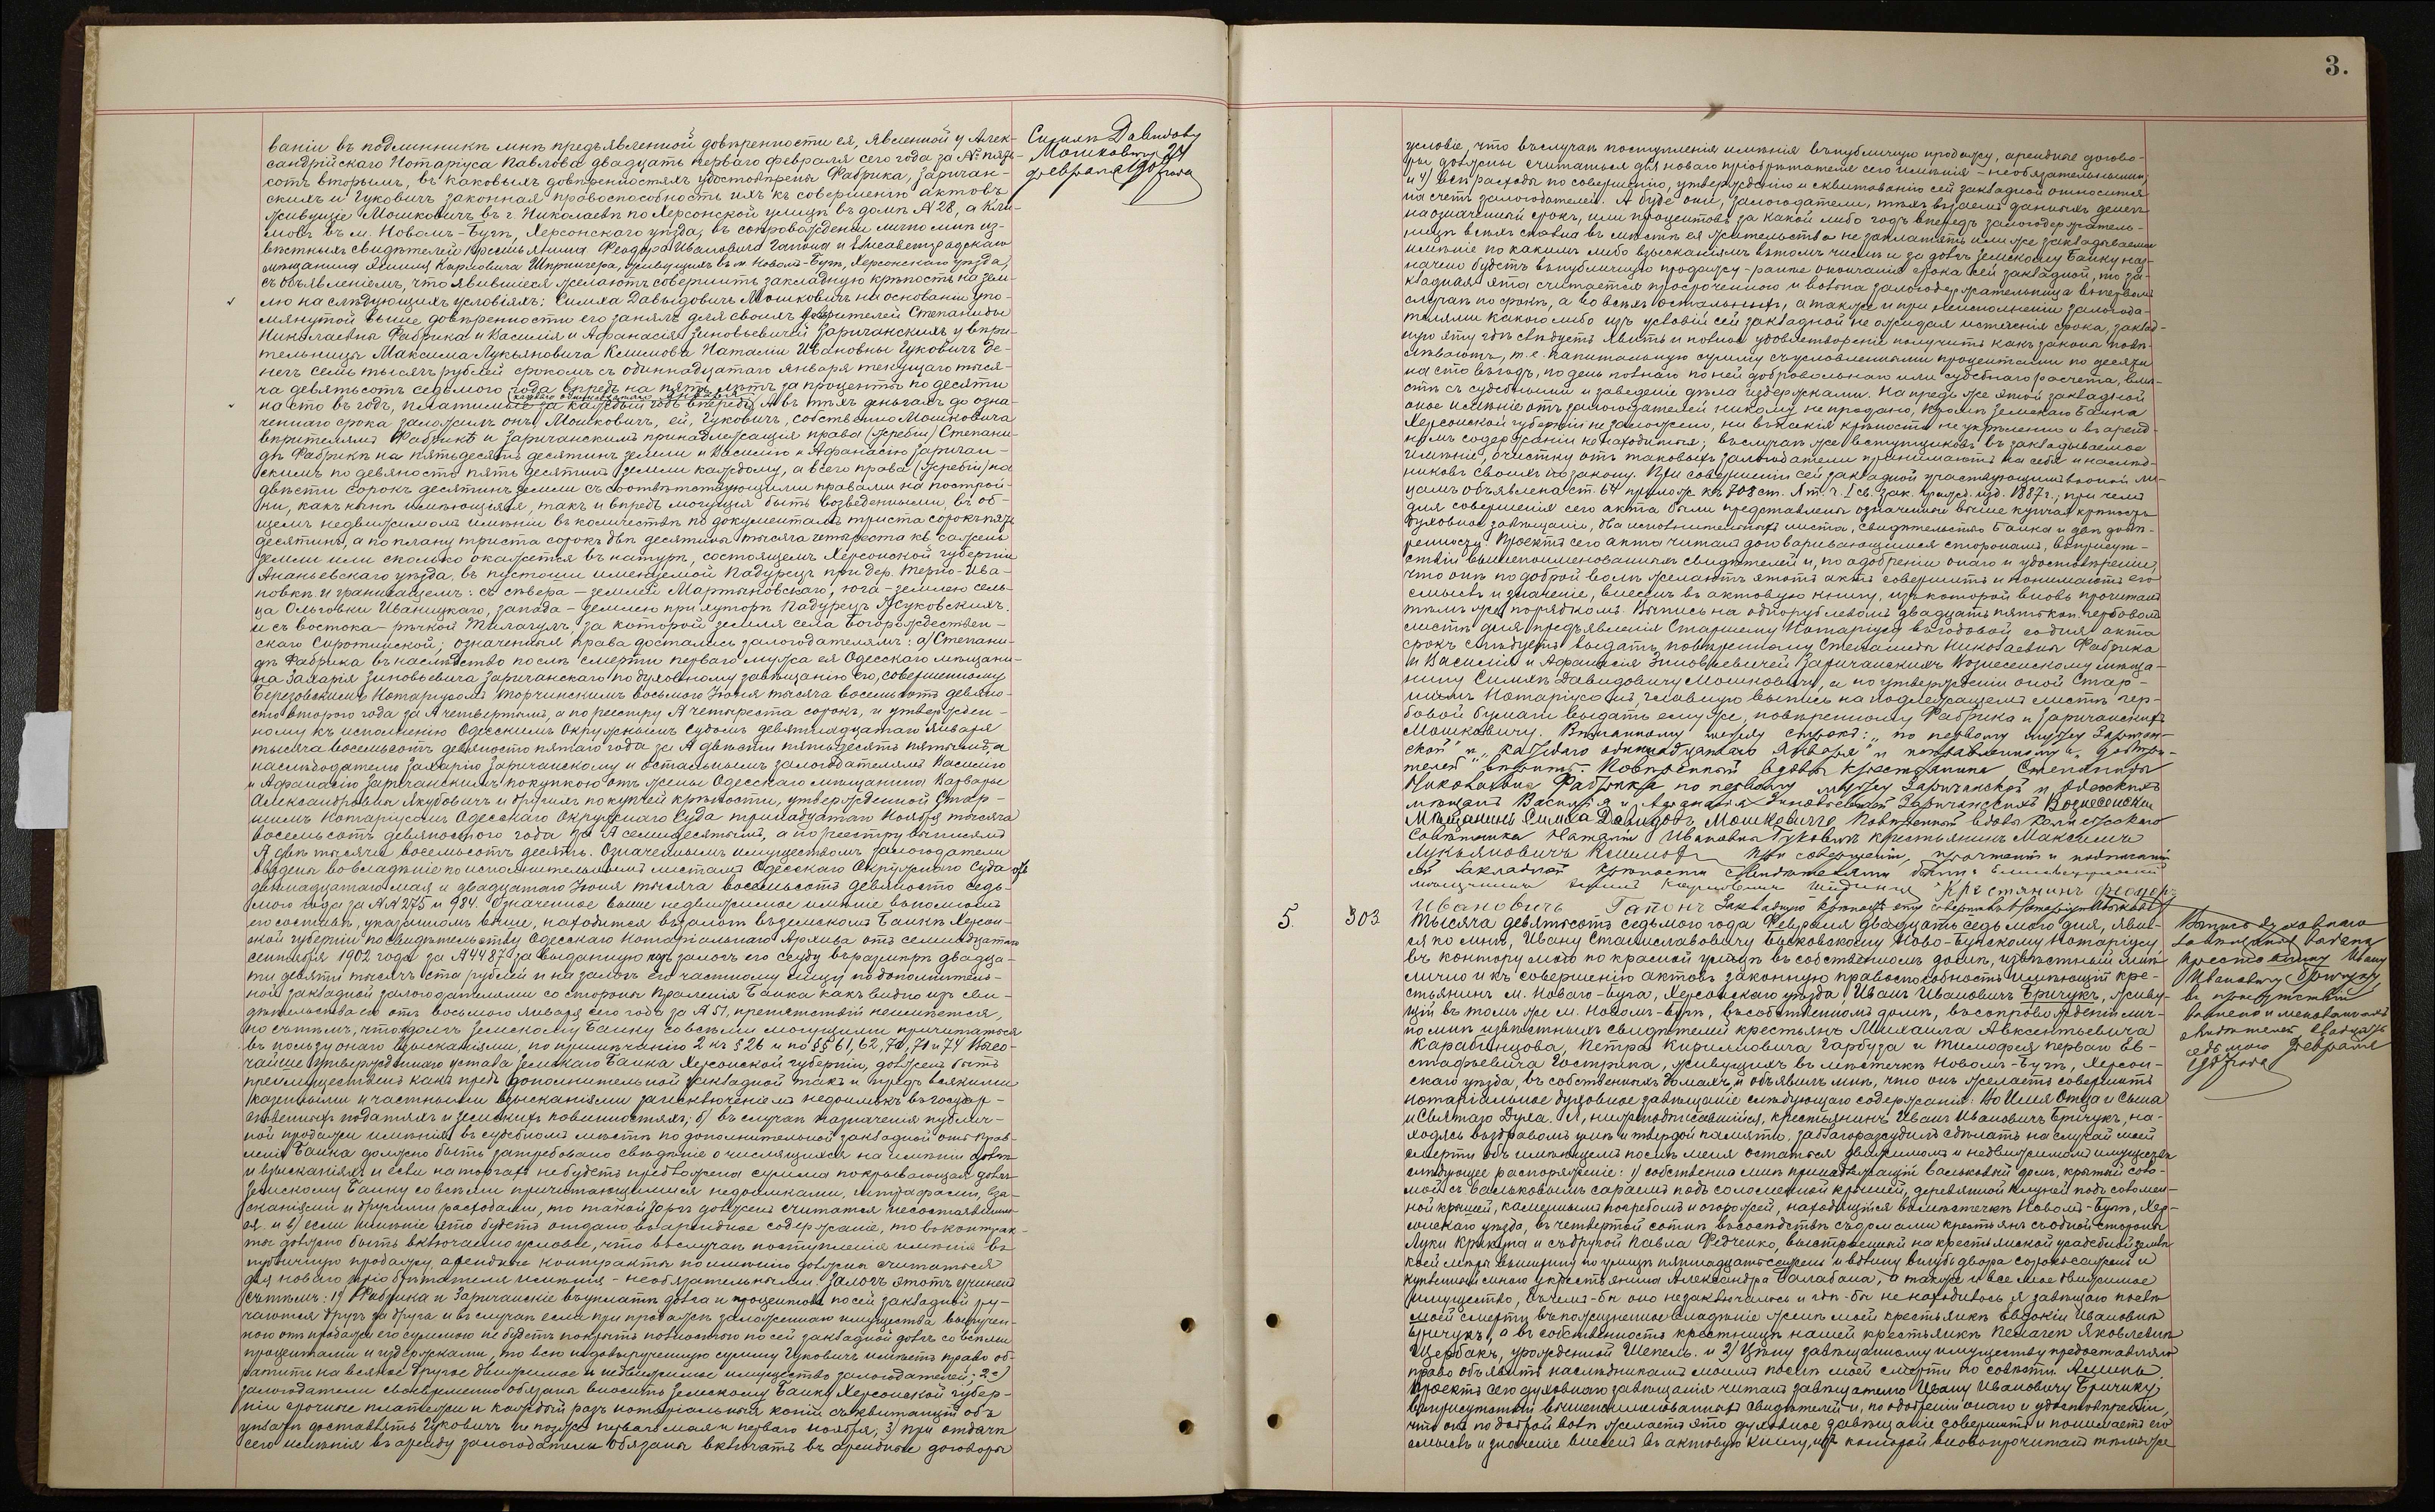 ваніи въ подлинникѣ мнѣ предъявленной довѣренности ея, явленной у Алек-
сандрійскаго Нотаріуса Павлова двадцать перваго февраля сего года за № пять-
сотъ вторымъ, въ каковыхъ довѣренностяхъ удостовѣрена Фабрика, Заричан-
скихъ и Гуковичъ законная правоспособность ихъ къ совершенію актовъ
живущіе Мошковичъ въ г. Николаевѣ по Херсонской улицѣ въ домѣ № 28, а Кли-
мовъ въ м. Новомъ-Бугѣ, Херсонскаго уѣзда, въ сопровожденіи лично мнѣ из-
вѣстныхъ свидѣтелей крестьянина Феодора Ивановича Гапона и Елисаветградскаго
мѣщанина Якима Карповича живущихъ въ м. Новомъ-Бугѣ, Херсонскаго уѣзда,
съ объявленіемъ, что явившіеся желаютъ совершить закладную крѣпость на зем-
лю на слѣдующихъ условіяхъ: Симха Давыдовичъ Мошковичъ на основаніи упо-
мянутой выше довѣренности его занялъ для своихъ вѣрителей Степаниды
Николаевны Фабрика и Василія и Афанасія Зиновьевичей Заричанскихъ у вѣри-
тельницы Максима Лукьяновича Климова Наталіи Ивановны Гуковичъ де-
негъ семь тысячъ рублей срокомъ съ одиннадцатаго января текущаго тыся-
ча девятьсотъ седьмого года впредь на пять лѣтъ за проценты по десяти
каждаго одиннадцатаго января
на сто въ годъ, платимые за каждый годъ впередъ. А въ тѣхъ деньгахъ до озна-
ченнаго срока заложилъ онъ, Мошковичъ, ей, Гуковичъ, собственно Мошковича
вѣрителямъ Фабрикѣ и Заричанскимъ принадлежащія права (жребіи) Степани-
дѣ Фабрикѣ на пятьдесятъ десятинъ земли и Василію и Афанасію Заричан-
скимъ по девяносто пять десятинъ земли каждому, а всего права (жребіи) на
двѣсти сорокъ десятинъ земли съ соотвѣтствующими правами на построй-
ки, какъ нынѣ имѣющіяся, такъ и впредь могущія быть возведенными, въ об-
щемъ недвижимомъ имѣніи въ количествѣ по документамъ триста сорокъ пять
десятинъ, а по плану триста сорокъ двѣ десятины тысяча четыреста кв. сажень
земли или сколько окажется въ натурѣ, состоящемъ Херсонской губерніи
Ананьевскаго уѣзда, въ пустоши именуемой Кадурецъ при дер. Терно-Ива-
новкѣ и граничащемъ: съ сѣвера – землей Мартыновскаго, юга – землею сель-
ца Ольговки Иваницкаго, запада – землею при хуторѣ Кадурецъ Жуковскихъ,
и съ востока – рѣчкой Тилигулъ, за которой земля села Богорождествен-
скаго Сиротинской; означенныя права достались залогодателямъ: а) Степани-
дѣ Фабрика въ наслѣдство послѣ смерти перваго мужа ея Одесскаго мѣщани-
на Захарія Зиновьевича Заричанскаго по духовному завѣщанію его, совершенному
Березовскимъ Нотаріусомъ Торчинскимъ восьмого Іюня тысяча восемьсотъ девяно-
сто второго года за № четвертымъ, а по реестру № четыреста сорокъ, и утвержден-
ному къ исполненію Одесскимъ Окружнымъ Судомъ девятнадцатаго Января
тысяча восемьсотъ девяносто пятаго года за № двѣсти пятьдесятъ пятымъ, а
наслѣдодателю Захарію Заричанскому и остальнымъ залогодателямъ Василію
и Афанасію Заричанскимъ покупкою отъ жены Одесскаго мѣщанина Варвары
Александровны Якубовичъ и другихъ по купчей крѣпости, утвержденной Стар-
шимъ Нотаріусомъ Одесскаго Окружнаго Суда тринадцатаго Ноября тысяча
восемьсотъ девяностого года за № семидесятымъ, а по реестру выписями
№ двѣ тысячи восемьсотъ десять. Означеннымъ имуществомъ залогодатели
введены во владѣніе по исполнительнымъ листамъ Одесскаго Окружнаго Суда отъ
двѣнадцатаго мая и двадцатаго Іюня тысяча восемьсотъ девяносто седь-
мого года за №№ 275 и 984. Означенное выше недвижимое имѣніе въ полномъ
его составѣ, указанномъ выше, находится въ залогѣ въ Земскомъ Банкѣ Херсон-
ской губерніи по свидѣтельству Одесскаго Нотаріальнаго Архива отъ семнадцатаго
сентября 1902 года за № 4487 за выданную подъ залогъ его ссуду въ размѣрѣ двадца-
ти девяти тысячъ ста рублей и на залогъ его частному лицу по дополнитель-
ной закладной залогодателями со стороны Правленія Банка какъ видно изъ сви-
дѣтельства его отъ восьмого января сего года за № 51, препятствій не имѣется,
но съ тѣмъ, что долгъ Земскому Банку со всѣми могущими причитаться
въ пользу онаго взысканіями, по примѣчанію 2 къ § 26 и по §§ 61, 62, 70, 71 и 74 Высо-
чайше утвержденнаго устава Земскаго Банка Херсонской губерніи, долженъ быть
преимущественъ какъ предъ дополнительной закладной такъ и предъ всякими
казенными и частными взысканіями за исключеніемъ недоимокъ въ государ-
ственныхъ податяхъ и земскихъ повинностяхъ; б) въ случаѣ назначенія публич-
ной продажи имѣнія въ судебномъ мѣстѣ по дополнительной закладной отъ Прав-
ленія Банка должно быть затребовано свѣдѣніе о числящихся на имѣніи долгѣ
и взысканіяхъ и если на торгахъ не будетъ предложена сумма покрывающая долгъ
Земскому Банку со всѣми причитающимися недоимками, штрафами, вза-
сканіями и другими расходами, то такой торгъ долженъ считаться несостоявшим-
ся и в) если имѣніе это будетъ отдано въ арендное содержаніе, то въ контрак-
тѣ должно быть включено условіе, что въ случаѣ поступленія имѣнія въ
публичную продажу, арендные контракты по имѣнію должны считаться
для новаго пріобрѣтателя имѣнія – необязательными. Залогъ этотъ учиненъ
съ тѣмъ: 1) Фабрика и Заричанскіе въ уплатѣ долга и процентовъ по сей закладной ру-
чаются другъ за друга и въ случаѣ если при продажѣ заложеннаго имущества выручен-
ною отъ продажи его суммою не будетъ покрытъ полностью по сей закладной долгъ со всѣми
процентами и издержками, то всю недовырученную сумму Гуковичъ имѣетъ право об-
ратить на всякое другое движимое и недвижимое имущество залогодателей; 2)
залогодатели своевременно обязаны вносить Земскому Банку Херсонской губер-
ніи срочные платежи и каждый разъ нотаріальныя копіи съ квитанцій объ
уплатѣ доставлять Гуковичъ не позже перваго мая и перваго ноября; 3) при отдачѣ
сего имѣнія въ аренду залогодатели обязаны включать въ арендные договоры
Давидову
Мошковичу 24
февраля 1907 года
3.
условіе, что въ случаѣ поступленія имѣнія въ публичную продажу, арендные догово-
ры должны считаться для новаго пріобрѣтателя сего имѣнія – необязательными;
и 4) всѣ расходы по совершенію, утвержденію и сквитованію сей закладной относятся
на счетъ залогодателей. А буде они, залогодатели, тѣхъ взаемъ данныхъ денегъ
на означенный срокъ, или процентовъ за какой либо годъ впередъ залогодержатель-
ницѣ всѣхъ сполна въ мѣстѣ ея жительства не заплатятъ или же закладываемое
имѣніе по какимъ либо взысканіямъ въ томъ числѣ и за долгъ Земскому Банку наз-
начено будетъ въ публичную продажу – ранѣе окончанія срока сей закладной, то за-
кладная эта считается просроченною и вольна залогодержательница въ первомъ
случаѣ по срокѣ, а во всѣхъ остальныхъ, а также и при неисполненіи залогода-
телями какого либо изъ условій сей закладной не ожидая истеченія срока, заклад-
ную эту гдѣ слѣдуетъ явить и полное удовлетвореніе получить какъ законы повѣ-
лѣваютъ, т.е. капитальную сумму съ условленными процентами по десяти
на сто въ годъ, по день полнаго по ней добровольнаго или судебнаго расчета, вмѣ-
стѣ съ судебными и за веденіе дѣла издержками. На предь же этой закладной
оное имѣніе отъ залогодателей никому не продано, кромѣ Земскаго Банка
Херсонской губерніи не заложено, ни въ какія крѣпости не укрѣплено и въ аренд-
номъ содержаніи не находится; въ случаѣ же вступщиковъ въ закладываемое
имѣніе, очистку отъ таковыхъ залогодатели принимаютъ на себя и наслѣд-
никовъ своихъ по закону. При совершеніи сей закладной участвующимъ въ оной ли-
цамъ объявлена ст. 64 прилож. къ 708 ст. X т. ч. I св. зак. гражд. изд. 1887 г., при чемъ
для совершенія сего акта были представлены означенныя выше купчая крѣпость
духовное завѣщаніе, два исполнительныхъ листа, свидѣтельство Банка и двѣ довѣ-
ренности. Проектъ сего акта читалъ договаривающимся сторонамъ, въ присут-
ствіи вышепоименованныхъ свидѣтелей и, по одобреніи онаго и удостовѣреніи,
что они по доброй волѣ желаютъ этотъ актъ совершить и понимаютъ его
смыслъ и значеніе, внесенъ въ актовую книгу, изъ которой вновь прочитанъ
тѣмъ же порядкомъ. Выпись на однорублевомъ двадцать пяти коп. гербовомъ
листѣ для предъявленія Старшему Нотаріусу въ годовой со дня акта
срокъ слѣдуетъ выдать повѣренному Степаниды Николаевны Фабрика
и Василія и Афанасія Зиновьевичей Заричанскихъ Вознесенскому мѣща-
нину Симхѣ Давидовичу Мошковичу, а по утвержденіи оной Стар-
шимъ Нотаріусомъ, главную выпись на подлежащемъ листѣ гер-
бовой бумаги выдать ему же, повѣренному Фабрика и Заричанскихъ
Мошковичу. Вписанному между строкъ: „по первому мужу Заричан-
ской“ и „каждаго одиннадцатаго января“ и поправленному „довѣри-
телей“ вѣрить. Повѣренный вдовы крестьянина Степаниды
Николаевны Фабрика по первому мужу Заричанской и Одесскихъ
мѣщанъ Василія и Афанасія Зиновьевичей Заричанскихъ Вознесенскій
Мѣщанинъ Симха Давидовъ Мошковичъ. Повѣренный вдовы
Совѣтника Наталіи Ивановны Гуковичъ крестьянинъ Максимъ
Лукьяновичъ Климовъ. При совершеніи, прочтеніи и подписаніи
сей закладной крѣпости свидѣтелями были: Елисаветградскій
мѣщанинъ Якимъ Карповичъ Крестянинъ Федоръ
Ивановичъ Гапонъ. Закладную крѣпость эту совершилъ Нотаріусъ Высковскій
5. 303
Тысяча девятьсотъ седьмого года Февраля двадцать седьмого дня, явил-
ся ко мнѣ, Ивану Станиславовичу Высковскому Ново-Бугскому Нотаріусу
въ контору мою по красной улицѣ въ собственномъ домѣ, извѣстный мнѣ
лично и къ совершенію актовъ законную правоспособность имѣющій кре-
стьянинъ м. Новаго-Буга, Херсонскаго уѣзда Иванъ Ивановичъ Бричукъ, живу-
щій въ томъ же м. Новомъ-Бугѣ, въ собственномъ домѣ, въ сопровожденіи лич-
но мнѣ извѣстныхъ свидѣтелей крестьянъ Михаила Авксентьевича
Карабинцова, Петра Кирилловича Гарбуза и Тимофея перваго Ев-
стафьевича Гострика, живущихъ въ мѣстечкѣ Новомъ-Бугѣ, Херсон-
скаго уѣзда, въ собственныхъ домахъ, и объявилъ мнѣ, что онъ желаетъ совершить
нотаріальное духовное завѣщаніе слѣдующаго содержанія: Во Имя Отца и Сына
и Святаго Духа. Я, нижеподписавшійся, крестьянинъ Иванъ Ивановичъ Бричукъ, на-
ходясь въ здравомъ умѣ и твердой памяти, заблагоразсудилъ сдѣлать на случай моей
смерти объ имѣющемъ послѣ меня остаться движимомъ и недвижимомъ имуществѣ
слѣдующее распоряженіе: 1) собственно мнѣ принадлежащій вальковый домъ, крытый соло-
мой съ вальковымъ сараемъ подъ соломенной крышей, деревянной клуней подъ соломен-
ной крышей, каменнымъ погребомъ и огорожей, находящіяся въ мѣстечкѣ Новомъ-Бугѣ, Хер-
сонскаго уѣзда, въ четвертой сотнѣ въ сосѣдствѣ съ домами крестьянъ съ одной стороны
Луки Крикуна и съ другой Павла Федченко, выстроенный на крестьянской усадебной землѣ
коей мѣры въ ширину по улицѣ пятнадцать сажень и въ длину вглубь двора сорокъ сажень и
купленный мною у крестьянина Александра Балабана, а также и все мое движимое
имущество, въ чемъ-бы оно не заключалось и гдѣ-бы не находилось я завѣщаю послѣ
моей смерти въ пожизненное владѣніе женѣ моей крестьянкѣ Евдокіи Ивановнѣ
Бричукъ, а въ собственность крестницѣ нашей крестьянкѣ Пелагеѣ Яковлевнѣ
Щербакъ, урожденной Шепель. и 2) Цѣну завѣщанному имуществу предоставляю
право объявить наслѣдникамъ моимъ послѣ моей смерти по совѣсти. Аминь.
Проектъ сего духовнаго завѣщанія читанъ завѣщателю Ивану Ивановичу Бричуку,
въ присутствіи вышепоименованныхъ свидѣтелей и, по одобреніи онаго и удостовѣреніи,
что онъ по доброй волѣ желаетъ это духовное завѣщаніе совершить и понимаетъ его
смыслъ и значеніе внесенъ въ актовую книгу, изъ которой вновь прочитанъ тѣмъ же
Выпись духовнаго
завѣщанія выдана
крестьянину Ивану
Ивановичу Бричуку
въ присутствіи
свидѣтелей двадцать
седьмого Февраля
1907 года